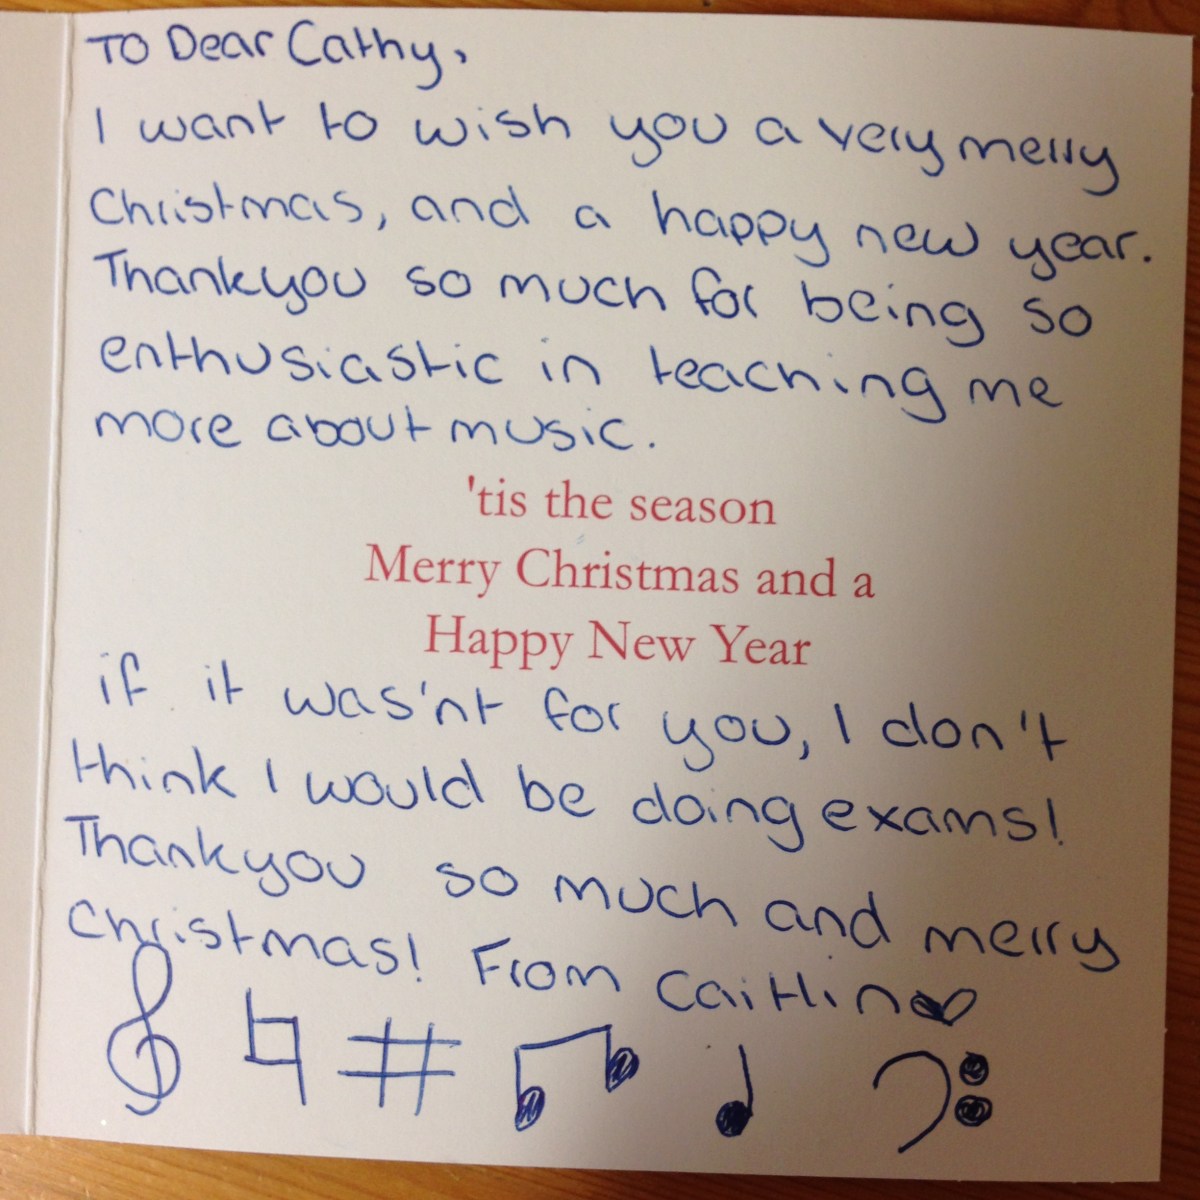 TO Dear Cathy,
I want to wish you a very merry
Christmas, and a happy new year.
Thankyou so much for being so
enthusiastic in teaching me
more about music.
'tis the season
Merry Christmas and a
Happy New Year
if it was'nt for you, I don't
think I would be doing exams!
Thankyou so much and merry
christmas! From Caitlin